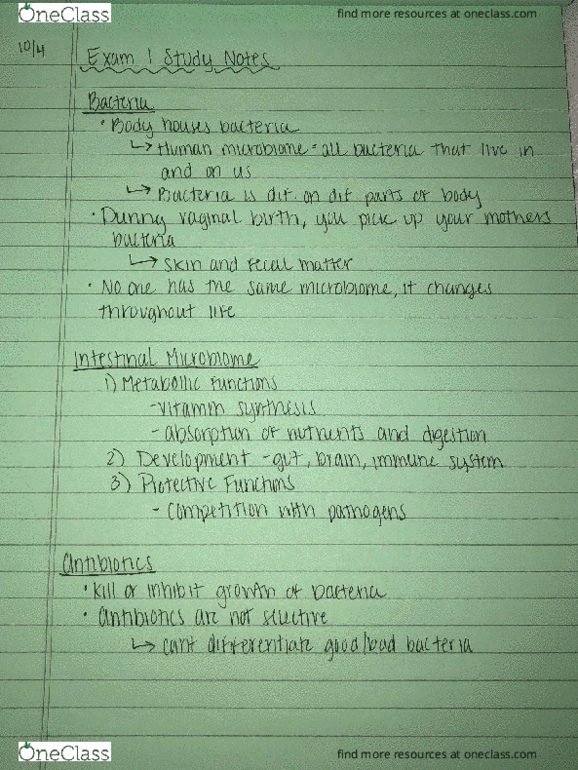 OneClass
find more resources at oneclass.com
10/4
Exam 1 Study Notes
Bacteria
• Body houses bacteria
↳ Human microbiome - all bacteria that live in
and on us
↳ Bacteria is dif on dif parts of body
• During vaginal birth, you pick up your mothers
bacteria
↳ skin and fecal matter
• No one has the same microbiome, it changes
throughout life
Intestinal Microbiome
1) Metabolic functions
-vitamin synthesis
- absorption of nutrients and digestion
2) Development - gut, brain, immune system
3) Protective Functions
- competition with pathogens
Antibiotics
• Kill or inhibit growth of bacteria
• Antibiotics are not selective
↳ cant differentiate good/bad bacteria
OneClass
find more resources at oneclass.com